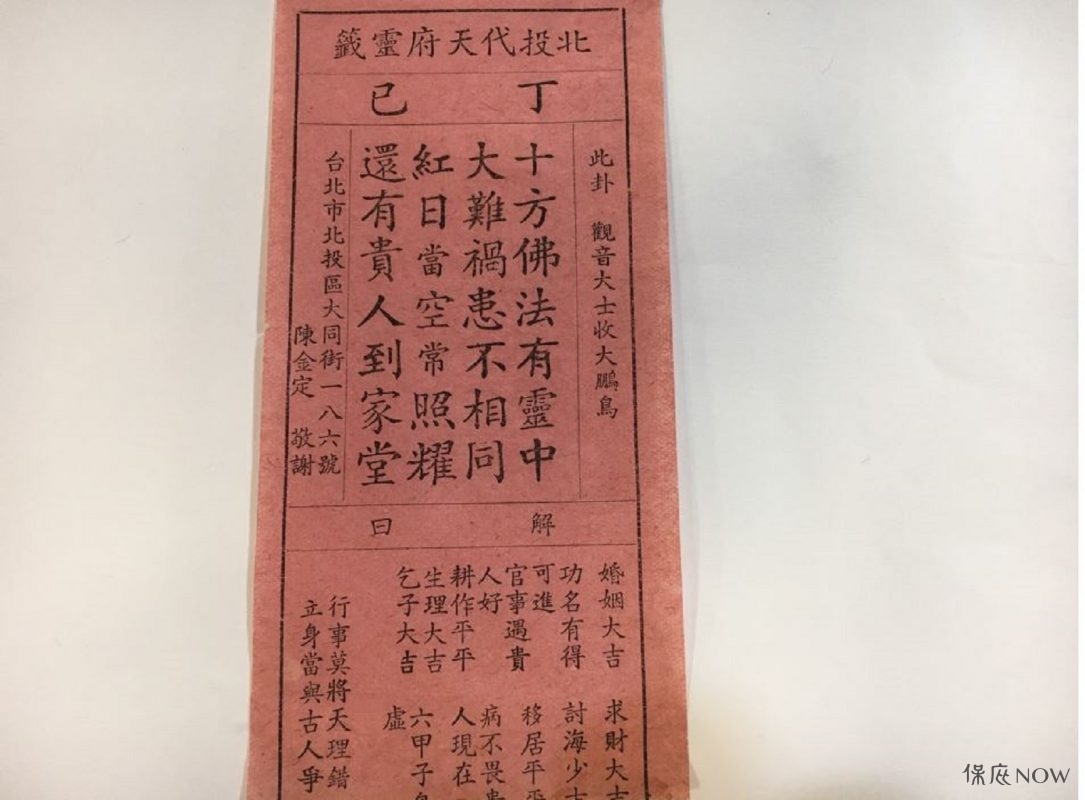 北投代天府靈籤
丁巳
此卦 觀音大士收大鵬鳥
十方佛法有靈中
大難禍患不相同
紅日當空常照耀
還有貴人到家堂
台北市北投區大同街一八六號
陳金定 敬謝
解曰
婚姻大吉
功名有得
可進
官事遇貴
人好
耕作平平
生理大吉
乞子大吉
求財大吉
討海少
移居平平
病不畏
人現在
六甲子
虛
行事莫將天理錯
立身當與古人爭
保庭NOW